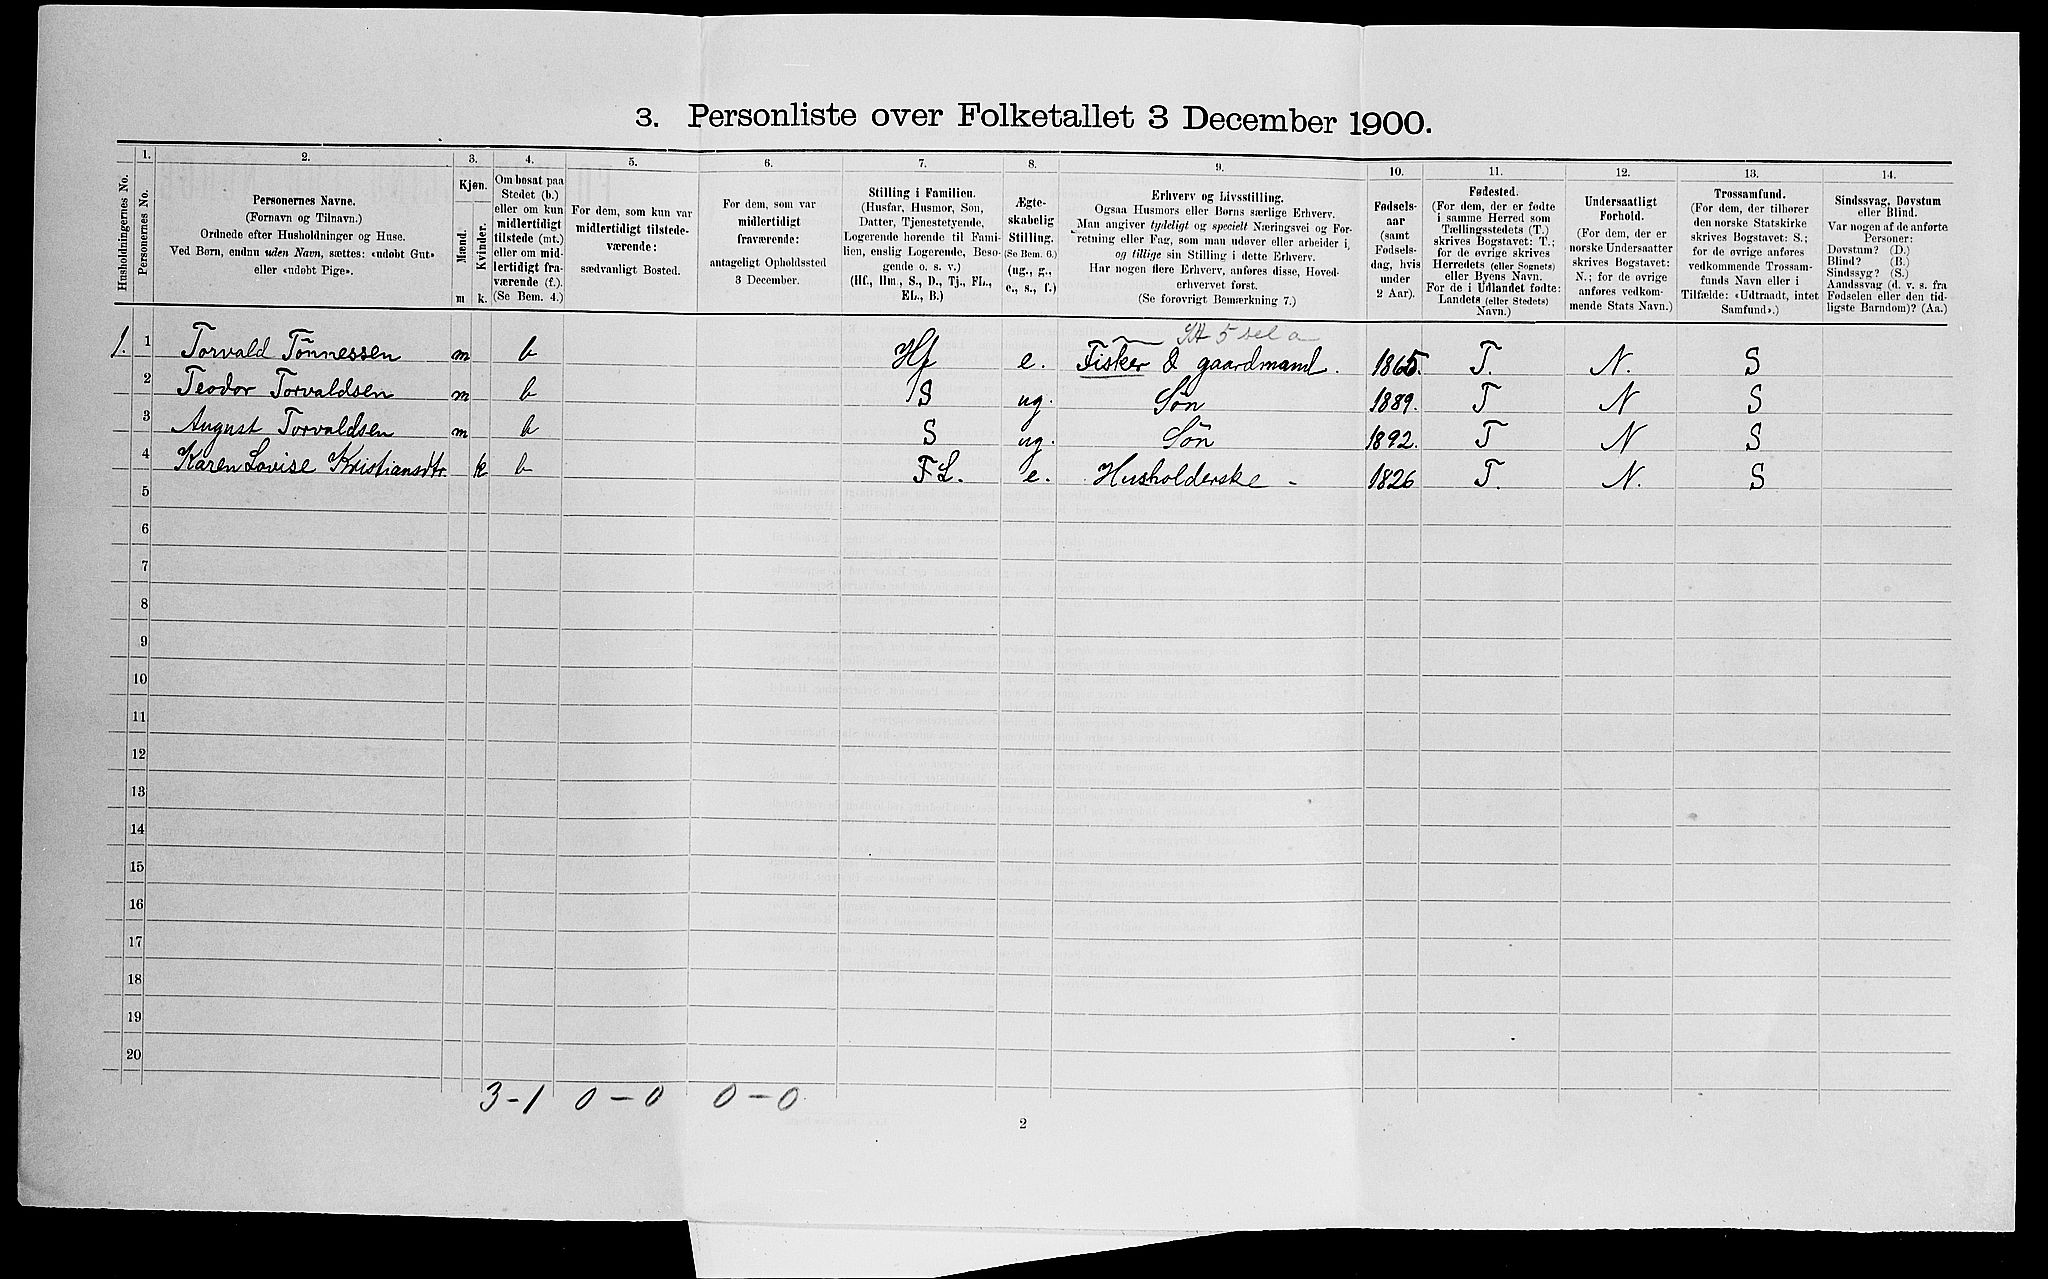 3. Personliste over Folketallet 3 December 1900.
1. 2. 3. 4. 5. 6. 7. 8. 9. 10. 11. 12. 13. 14.
Husholdningernes No.
Personernes No.
Personernes Navne.
(Fornavn og Tilnavn.)
Ordnede efter Husholdninger og Huse.
Ved Børn, endnu uden Navn, sættes: «udøbt Gut»
eller «udøbt Pige».
Kjøn.
Mænd.
Kvinder.
m k.
Om bosat paa
Stedet (b.)
eller om kun
midlertidigt
tilstede (mt.)
eller om mid-
lertidigt fra-
værende (f.).
(Se Bem. 4.)
For dem, som kun var
midlertidigt tilstede-
værende:
sædvanligt Bosted.
For dem, som var
midlertidigt
fraværende:
antageligt Opholdssted
3 December.
Stilling i Familien.
(Husfar, Husmor, Søn,
Datter, Tjenestetyende,
Logerende hørende til Fami-
lien, enslig Logerende, Beso-
gende o. s. v.)
(Hf., Hm., S., D., Tj., FL.,
EL., B.)
Ægte-
skabelig
Stilling.
(Se Bem. 6.)
(ug., g.,
e., s., f.)
Erhverv og Livsstilling.
Ogsaa Husmors eller Børns særlige Erhverv.
Man angiver tydeligt og specielt Næringsvei og For-
retning eller Fag, som man udøver eller arbeider i,
og tillige sin Stilling i dette Erhverv.
Har nogen flere Erhverv, anføres disse, Hoved-
erhvervet først.
(Se forøvrigt Bemærkning 7.)
Fødsels-
aar
(samt
Fødsels-
dag, hvis
under
2 Aar).
Fødested.
(For dem, der er fødte
i samme Herred som
Tællingsstedets (T.)
skrives Bogstavet: T.;
for de øvrige skrives
Herredets (eller Sognets)
eller Byens Navn.
For de i Udlandet fødte:
Landets (eller Stedets)
Navn.)
Undersaatligt
Forhold.
(For dem, der er
norske Undersaatter
skrives Bogstavet:
N.; for de øvrige
anføres vedkom-
mende Stats Navn.)
Trossamfund.
(For dem, der tilhører
den norske Statskirke
skrives Bogstavet: S.;
for de øvrige anføres
vedkommende Trossam-
funds Navn eller i
Tilfælde: «Udtraadt, intet
Samfund».)
Sindssvag, Døvstum
eller Blind.
Var nogen af de anførte
Personer:
Døvstum? (D.)
Blind? (B.)
Sindssyg? (S.)
Aandssvag (d. v. s. fra
Fødselen eller den tid-
ligste Barndom)? (Aa.)
1. 1 Torvald Tönnessen m b Hf e. Fisker & gaardmand. 1865. T. N. S
2 Teodor Torvaldsen m b S ug. Sön 1889. T N S
3 August Torvaldsen m b S ug. Sön 1892. T N S
4 Karen Lovise Kristiansdtr. k b FL. e. Husholderske - 1826 T. N. S
5
6
7
8
9
10
11
12
13
14
15
16
17
18
19
20
3-1 0-0 0-0
2